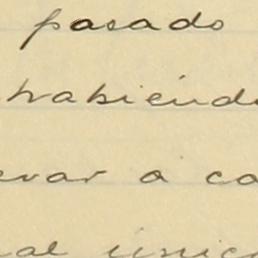 pasado
habiéndo
evar a ca
al únic